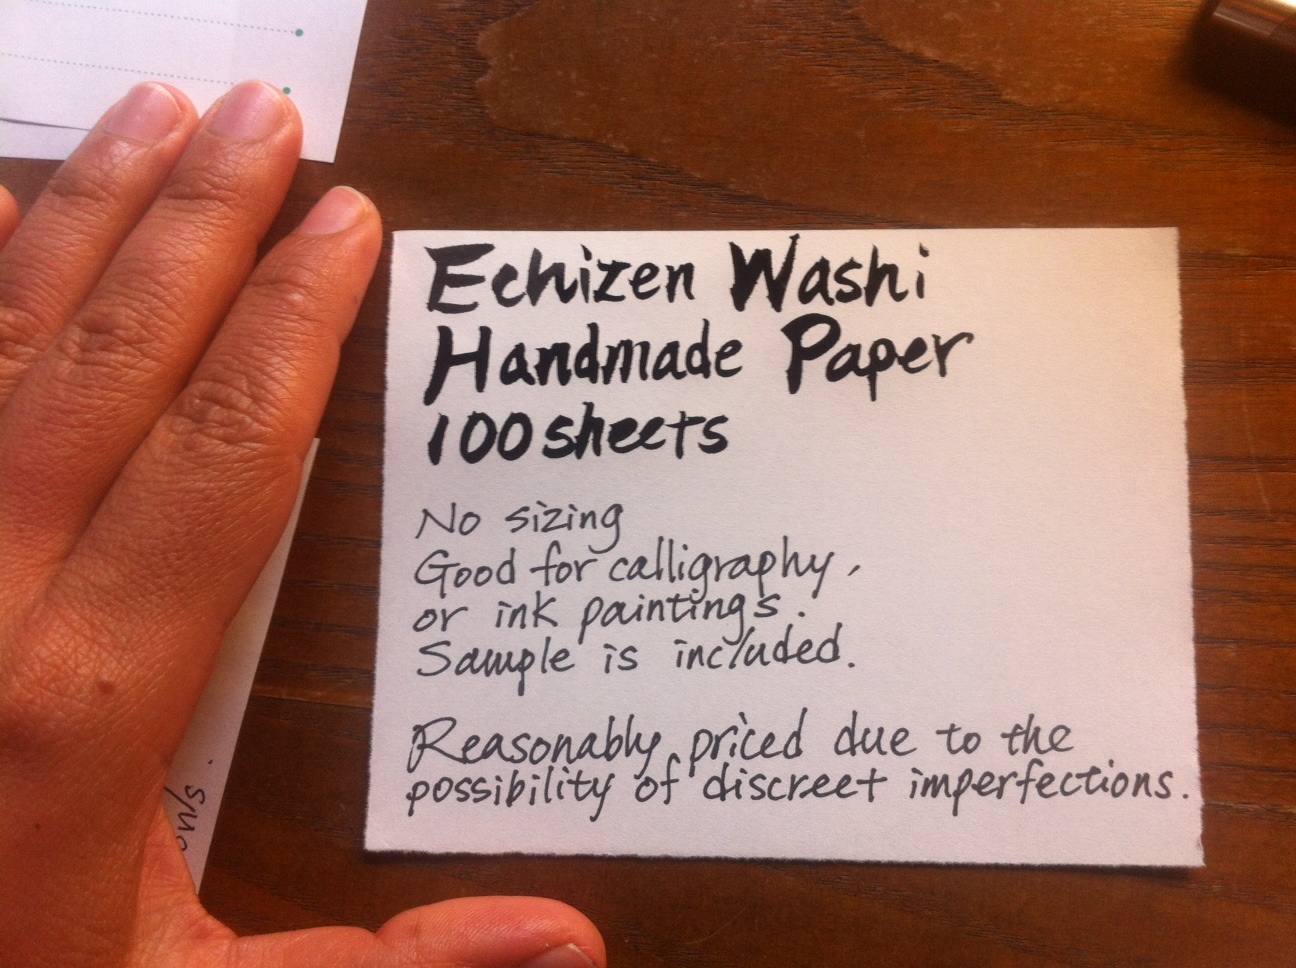 Echizen Washi
Handmade Paper
100 sheets
No sizing
Good for calligraphy,
or ink paintings.
Sample is included.
Reasonably priced due to the
possibility of discreet imperfections.